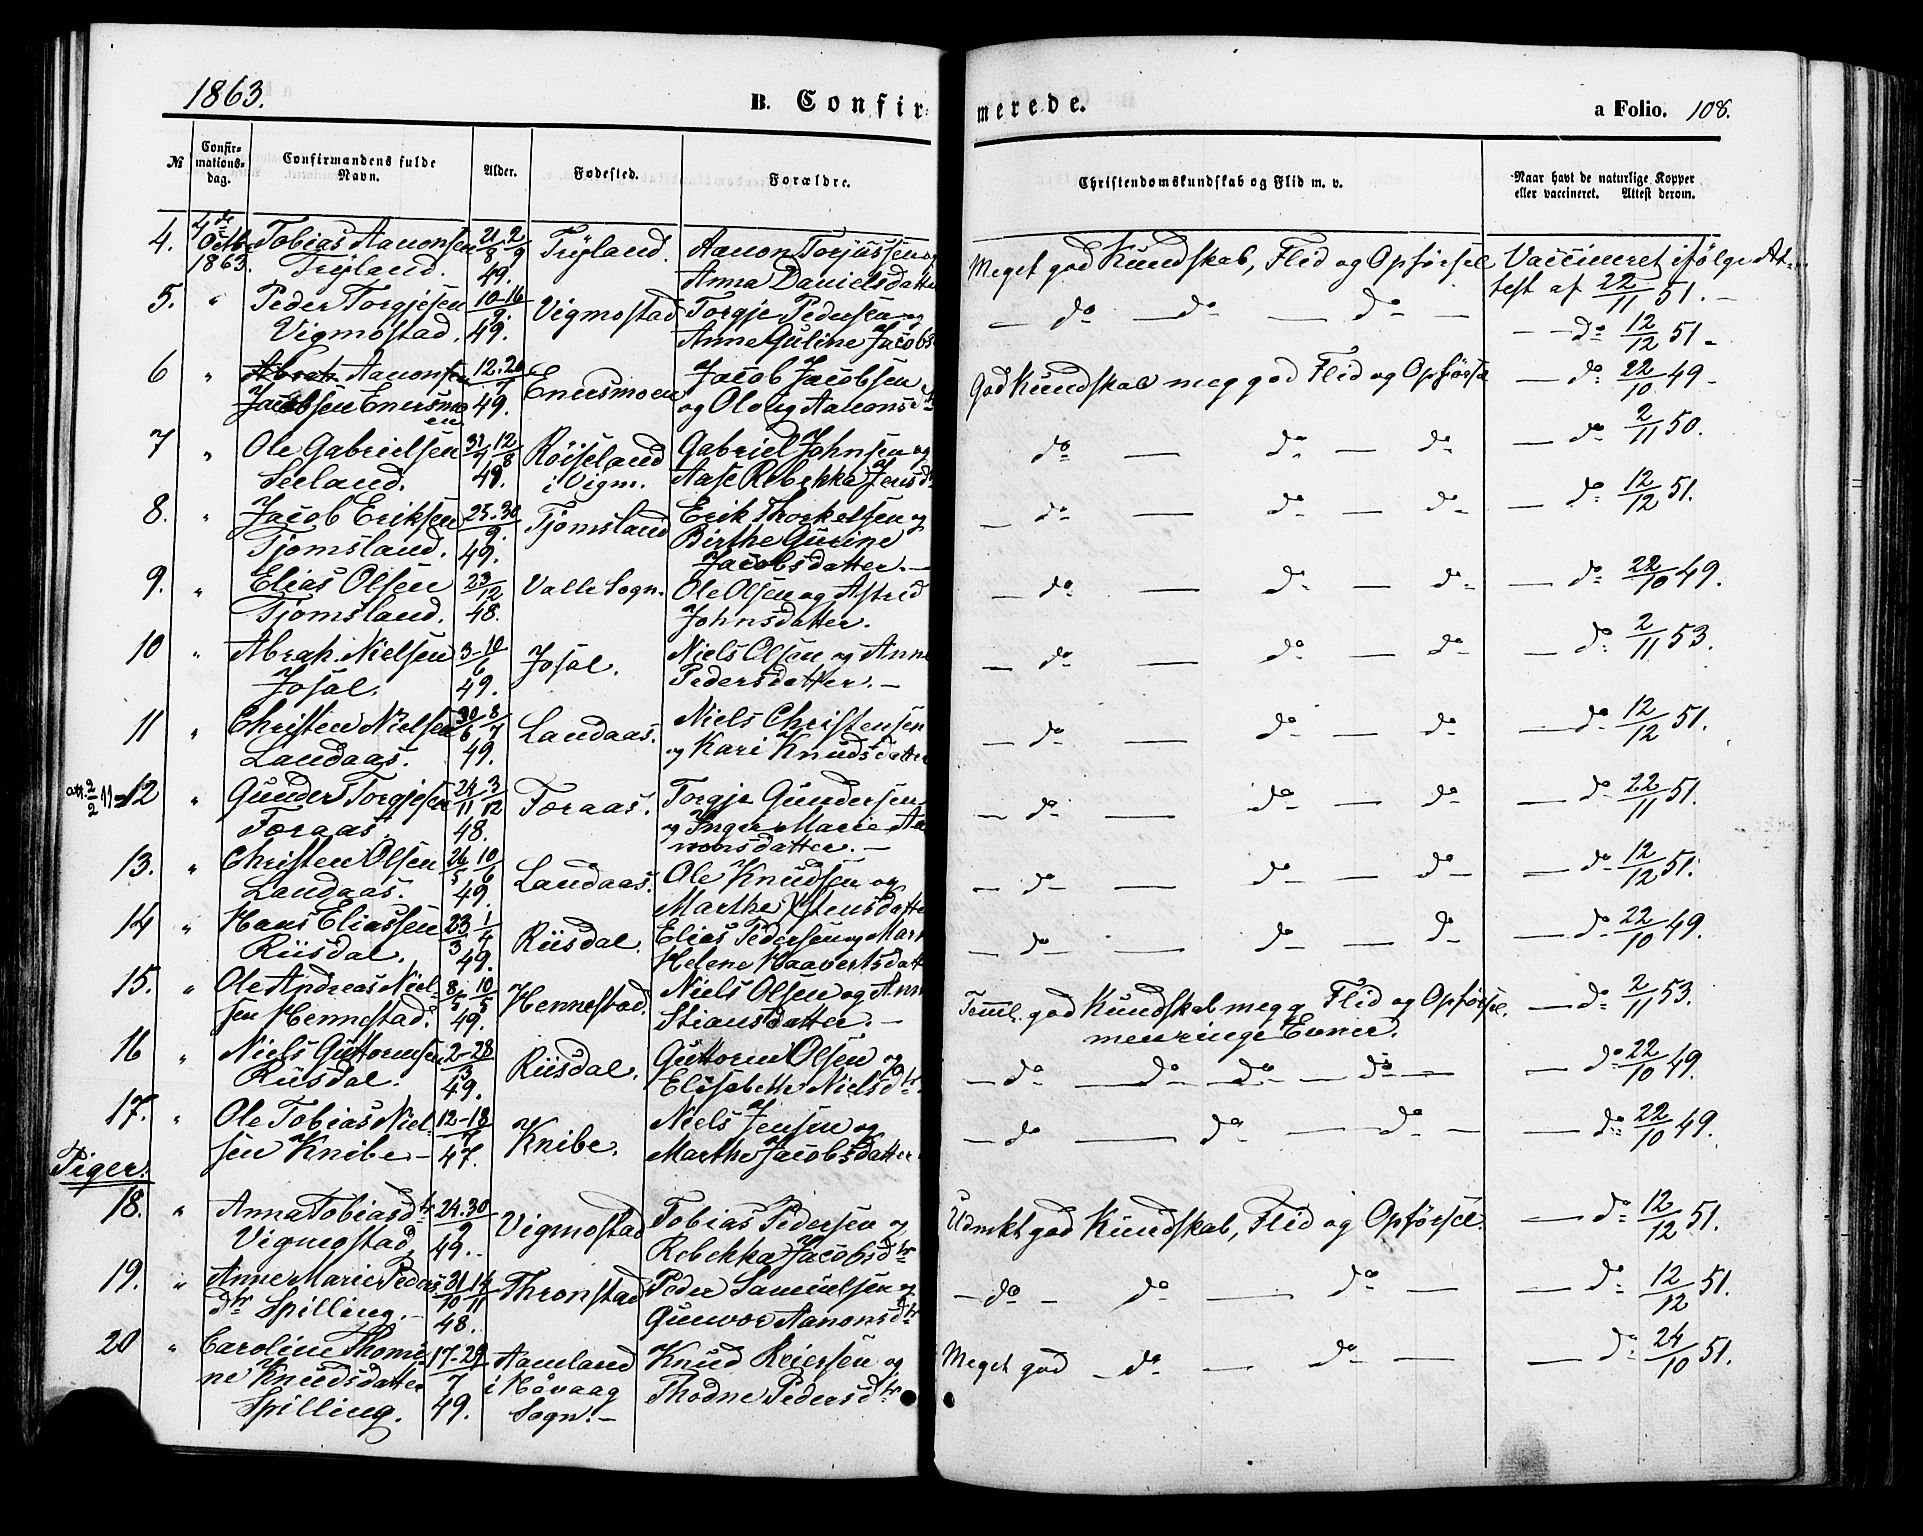 1863.
B. Confirmerede.
a Folio. 108.
№ Confirmationsdag. Confirmandens fulde Navn. Alder. Fødested. Forældre. Christendomskundskab og Flid m. v. Naar havt de naturlige Kopper eller vaccineret. Attest derom.
4. 4de Octb. 1863. Tobias Aanonsen 21/8 2/9 Tryland. Aanon Torjussen og Meget god Kundskab, Flid og Opførsel Vaccineret ifølge At-
Tryland. 49. Anna Danielsdatter test af 22/11 51.
5. " Peder Torgjesen 10-16/9. Vigmostad Torgje Pedersen og — do — do — do — — do 12/12 51.
Vigmostad. 49. Anne Guline Jacobs
6 " Abrah. Aanonsen 12.20/7 Enersmoen Jacob Jacobsen God Kundskab meg god Flid og Opførsel — do 22/10 49.
Jacobsen Enersmo 49. og Olevg Aanonsdtr
en
7 " Ole Gabrielsen 31/7 12/8 Røiseland Gabriel Johnsen og do — do — do — do 2/11 50.
Seeland. 49. i Vigm. Aase Rebekka Jensd
8. " Jacob Eriksen 25.30/9. Tjomsland Erik Thorkelsen og — do — do — do — do 12/12 51.
Tjomsland. 49. Birthe Gurine
Jacobsdatter. —
9. " Elias Olsen 23/12 Valle Sogn. Ole Olsen og Astrid — do — do — do — do 22/10 49.
Tjomsland. 48. Johnsdatter.
10 " Abrah. Nielsen 3-10/6 Josal. Niels Olsen og Anne — do — do — do — do 2/11 53.
Josal. 49. Pedersdatter. —
11 " Christen Nielsen 30/6 8/7 Landaas. Niels Christensen — do — do — do — do 12/12 51.
Landaas. 49. og Kari Knudsdatter
att. 2/2 11 12 " Gunder Torgjesen 24/11 3/12 Foraas. Torgje Gundersen — do — do — do — do 22/11 51.
Foraas. 48. og Inger Marie Aa
nonsdatter. —
13. " Christen Olsen 26/5 10/6 Landaas. Ole Knudsen og — do — do — do — do 12/12 51.
Landaas. 49. Marthe Stensdatte
14 " Hans Eliassen 23/3 1/4 Riisdal. Elias Pedersen og Mar — do — do — do — do 22/10 49.
Riisdal. 49. Helene Haavertsdatt
15. " Ole Andreas Niel- 8/5 10/5 Hennestad. Niels Olsen og Ann Temel. god Kundskab meg g. Flid og Opførsel, — do 2/11 53.
sen Hennestad. 49. Stiansdatter. — men ringe Evner.
16 " Niels Guttormsen 2-28/3 Riisdal. Guttorm Olsen og — do — do — do — do — — do 22/10 49.
Riisdal. 49. Elisabeth Nielsdtr
17. " Ole Tobias Niel- 12-18/7 Knibe. Niels Jensen og — do — do — do — — do 22/10 49.
sen Knibe — 47. Marthe Jacobsdatter
Piger.
18. " Anna Tobiasdtr 24.30/9 Vigmostad Tobias Pedersen og Udmrkt god Kundskab, Flid og Opførsel. — do 12/12 51.
Vigmostad 49. Rebekka Jacobsdtr
19. " Anne Marie Peders 31/10 14/11 Thronstad Peder Samuelsen og — do — do — do — — do 12/12 51.
dtr Spilling. — 48. Gunvor Aanonsdtr
20 " Caroline Thomi- 17-29/7 Aamland Knud Reiersen og Meget god — do — do — — do 24/10 51.
ne Knudsdatter 49. i Høvaag Thodne Pedersdtr
Spilling. Sogn. —